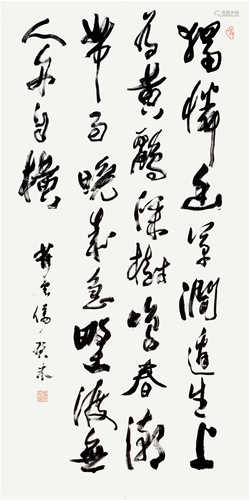 獨憐幽草澗邊生上
有黃鸝深樹鳴春潮
帶雨晚來急野渡無
人舟自橫
癸未